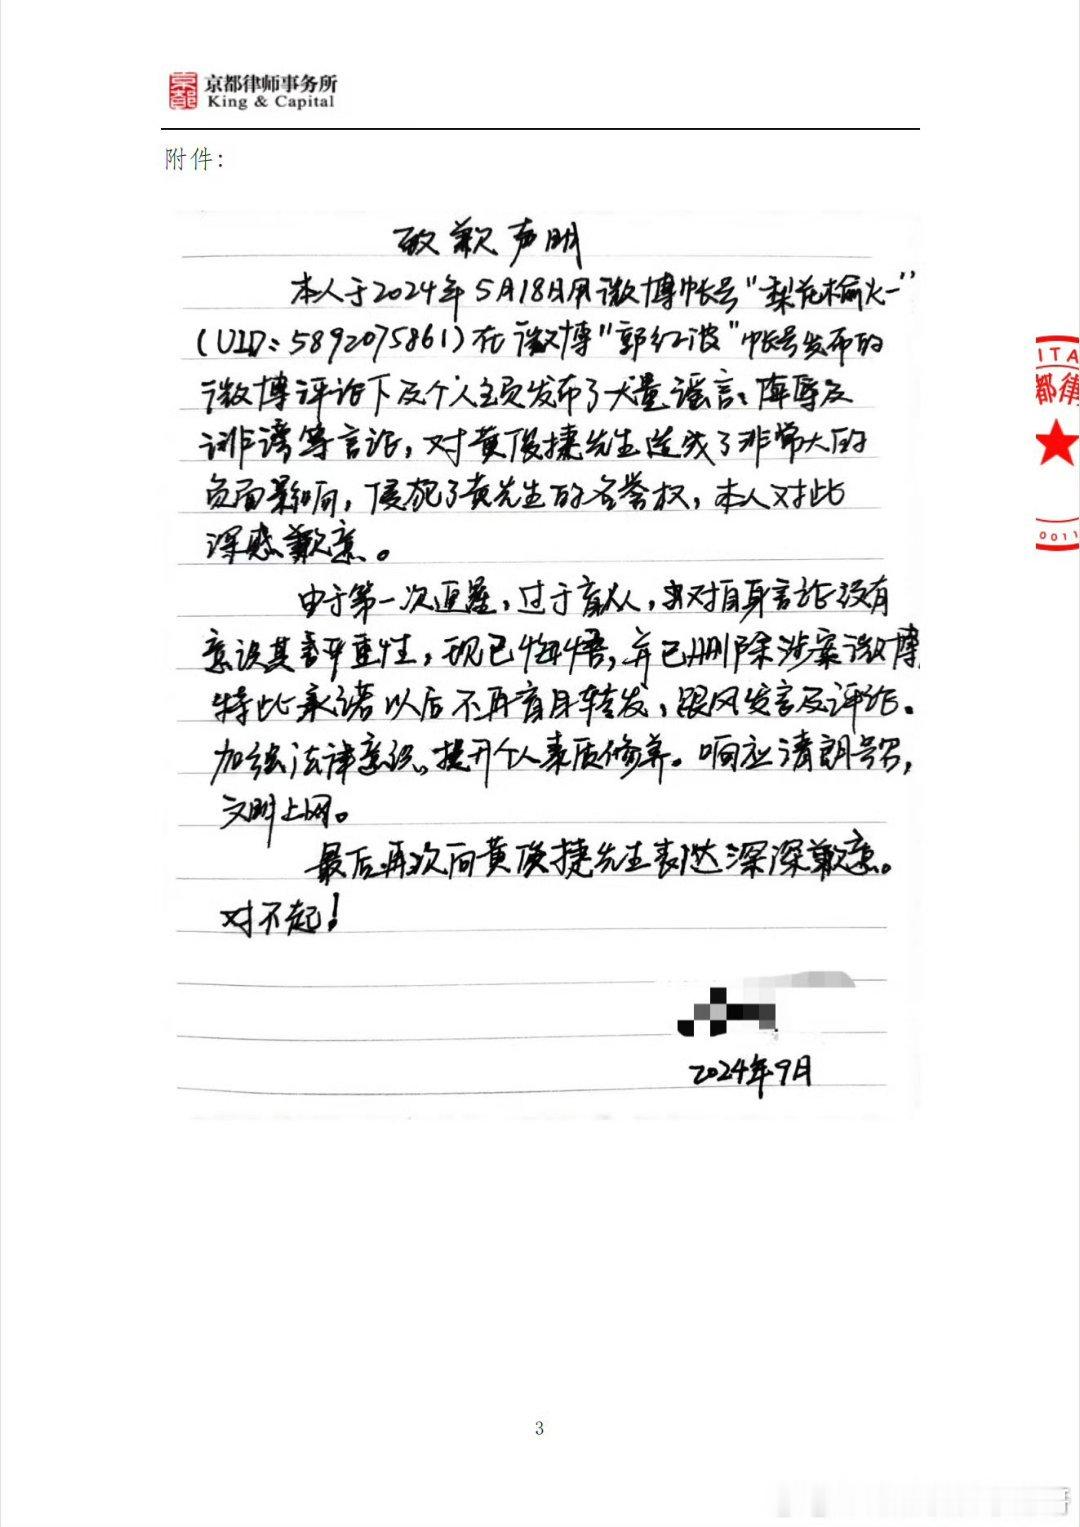 京都
京都律师事务所
King & Capital
附件：
致歉声明
本人于2024年5月18日用微博帐号“梨花榆火一”
（UID：5892075861）在微博“郭红波”帐号发布的
微博评论下及个人主页发布了大量谣言、侮辱及
诽谤等言论，对黄俊捷先生造成了非常大的
负面影响，侵犯了黄先生的名誉权，本人对此
深感歉意。
由于第一次追星，过于盲从，对自身言论没有
意识其严重性，现已悔悟，并已删除涉案微博
特此承诺以后不再盲目转发，跟风发言及评论。
加强法律意识、提升个人素质修养。响应清朗号召，
文明上网。
最后再次向黄俊捷先生表达深深歉意。
对不起！
2024年9月
ITA
都律
0011
3